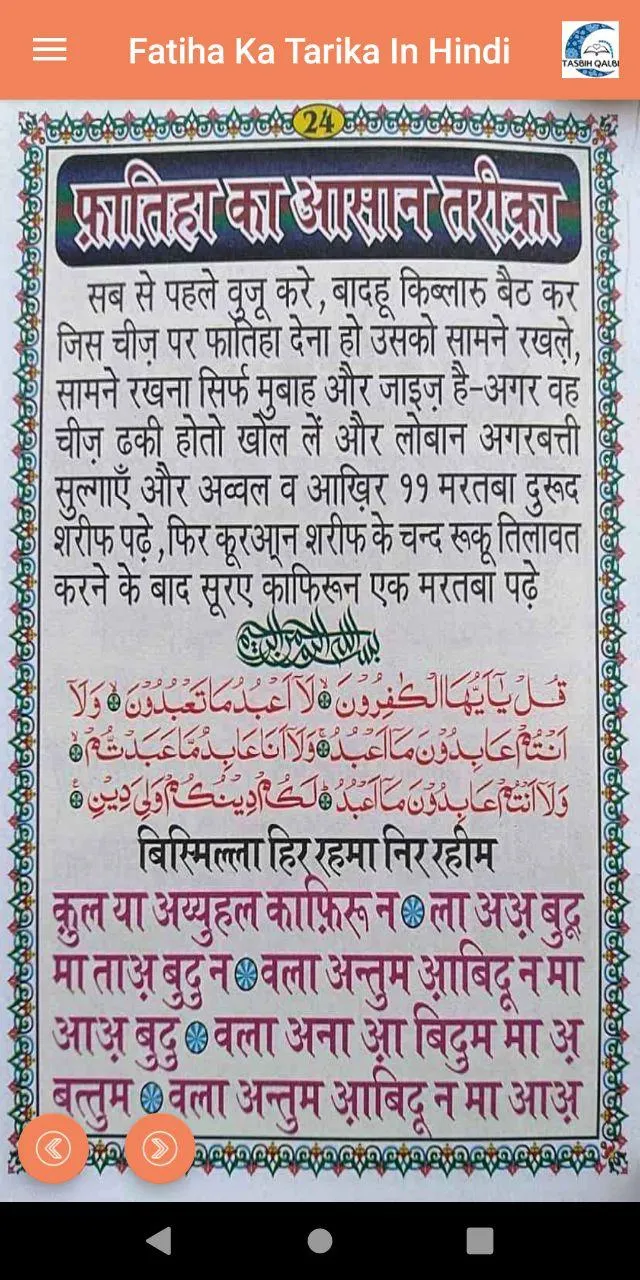 Fatiha Ka Tarika In Hindi
TASBIH QALBI
24
फ़ातिहा का आसान तरीक़ा
सब से पहले वुजू करे, बादहू किब्लारु बैठ कर
जिस चीज़ पर फातिहा देना हो उसको सामने रखले,
सामने रखना सिर्फ मुबाह और जाइज़ है-अगर वह
चीज़ ढकी होतो खोल लें और लोबान अगरबत्ती
सुल्गाएँ और अव्वल व आख़िर ११ मरतबा दुरूद
शरीफ पढ़े, फिर कूरआ्न शरीफ के चन्द रूकू तिलावत
करने के बाद सूरए काफिरून एक मरतबा पढ़े
بسم الله الرحمن الرحيم
قُلْ يٰٓاَيُّهَا الْكٰفِرُوْنَ ۙ لَآ اَعْبُدُ مَا تَعْبُدُوْنَ ۙ وَلَآ
اَنْتُمْ عَابِدُوْنَ مَآ اَعْبُدُ ۚ وَلَآ اَنَا عَابِدٌ مَّا عَبَدْتُّمْ ۙ
وَلَآ اَنْتُمْ عَابِدُوْنَ مَآ اَعْبُدُ ؕ لَكُمْ دِيْنُكُمْ وَلِيَ دِيْنِ ۠
बिस्मिल्ला हिर रहमा निर रहीम
क़ुल या अय्युहल काफ़िरू न ला अअ़ बुदू
मा ताअ़ बुदु न वला अन्तुम आ़बिदू न मा
आअ़ बुदु वला अना आ़ बिदुम मा अ़
बत्तुम वला अन्तुम आ़बिदू न मा आअ़